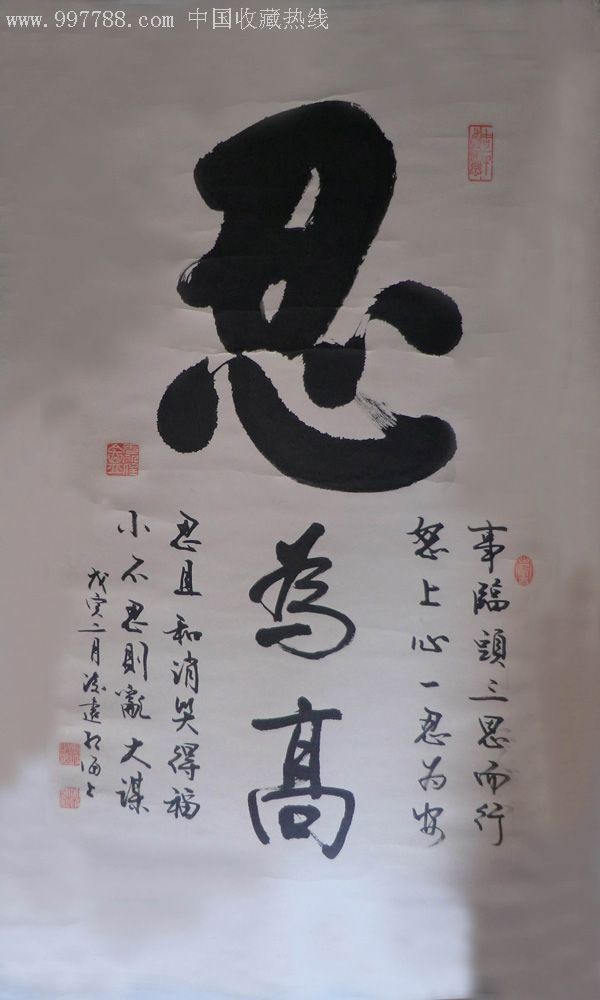 www.997788.com 中国收藏热线
忍
為
高
事臨頭三思而行
怒上心一忍为安
忍且和消災得福
小不忍則亂大謀
戊寅二月凌遠於海上